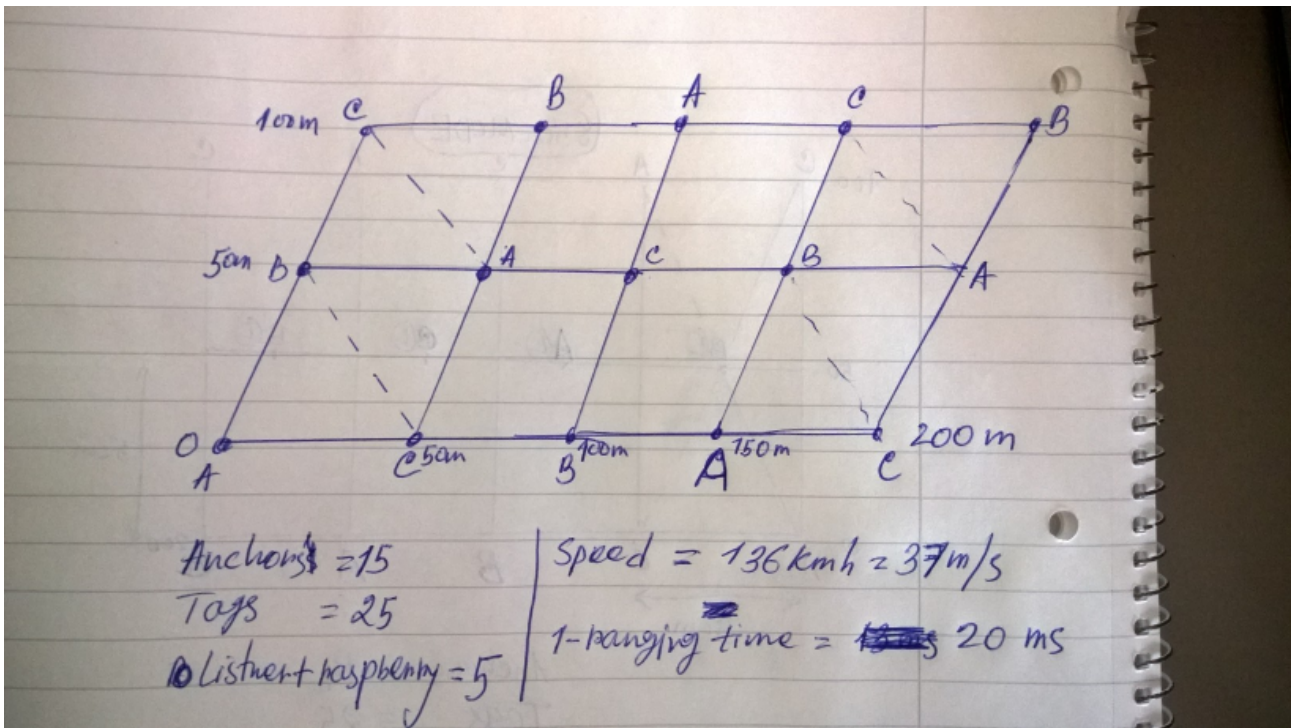 C B A C B
100m
50m B A C B A
O
A C 50m B 100m A 150m C 200 m
Anchors = 15
Tags = 25
Listner + raspberry = 5
Speed = 136 kmh = 37m/s
1-ranging time = 20 ms